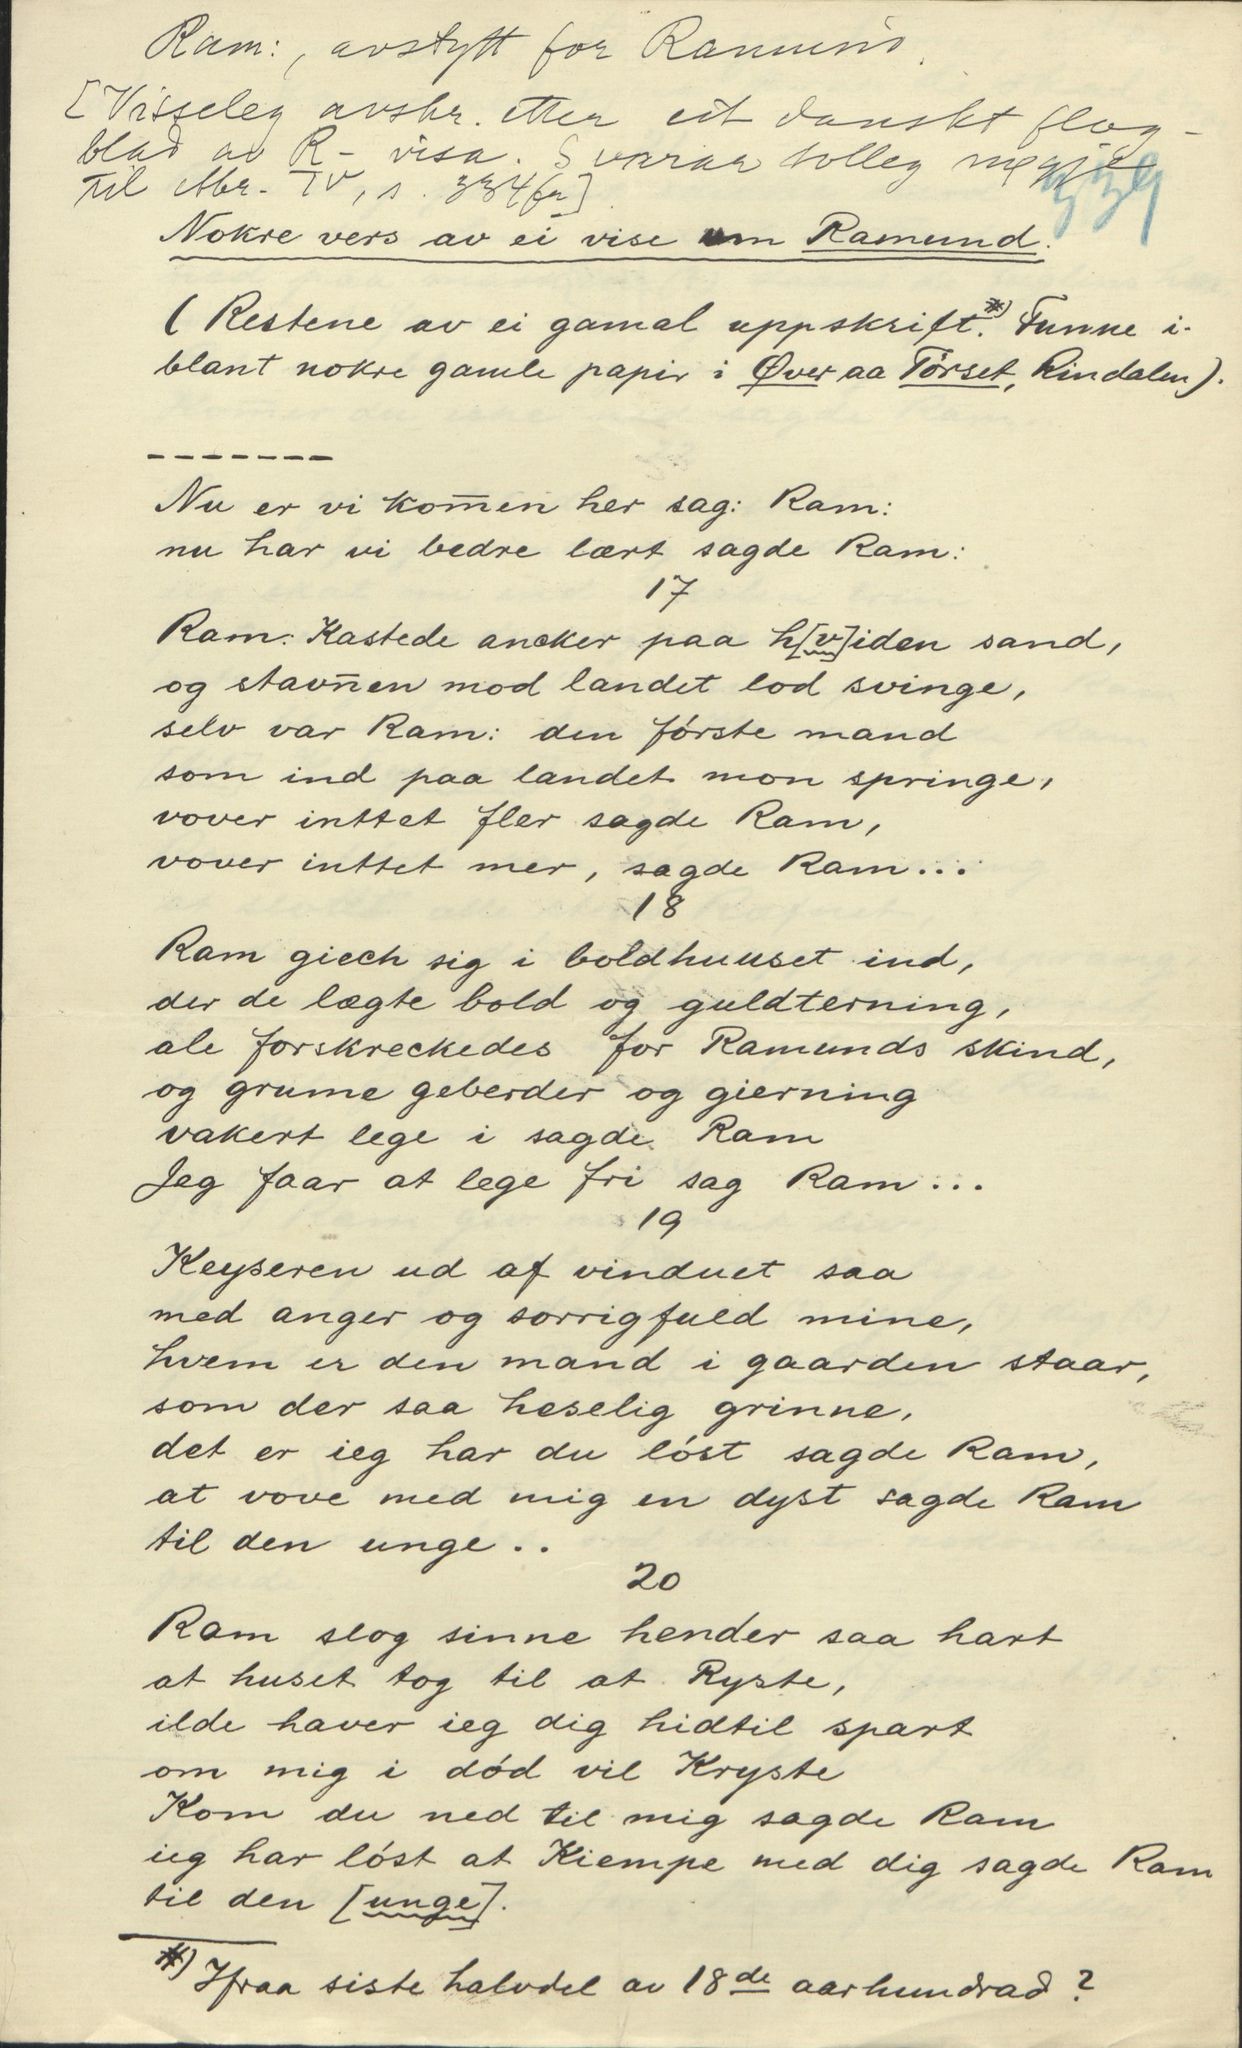 Ram:, avstytt for Ramund.
[Visseleg avskr. etter eit danskt flog-
blad av R- visa. Svarar tolleg nøgje
til Abr. IV, s. 334 fr]
339
Nokre vers av ei vise um Ramund.
( Restene av ei gamal uppskrift.*) Funne i-
blant nokre gamle papir i Øver aa Tórset, Rindalen).
-------
Nu er vi kom̅en her sag: Ram:
nu har vi bedre lært sagde Ram:
17
Ram: Kastede ancker paa h[v]iden sand,
og stavn̅en mod landet lod svinge,
selv var Ram: den fórste mand
som ind paa landet mon springe,
vover inttet fler sagde Ram,
vover inttet mer, sagde Ram...
18
Ram giech sig i boldhuuset ind,
der de lægte bold og guldterning,
ale forskreckedes for Ramunds skind,
og grume geberder og gierning
vakert lege i sagde Ram
Jeg faar at lege fri sag Ram...
19
Keyseren ud af vinduet saa
med anger og sorrigfuld mine,
hvem er den mand i gaarden staar,
som der saa heselig grinne,
det er ieg har du lóst sagde Ram,
at vove med mig en dyst sagde Ram
til den unge..
20
Ram slog sinne hender saa hart
at huset tog til at Ryste,
ilde haver ieg dig hidtil spart
om mig i dód vil Kryste
Kom du ned til mig sagde Ram
ieg har lóst at Kiempe med dig sagde Ram
til den [unge].
*) Ifraa siste halvdel av 18de aarhundrad?